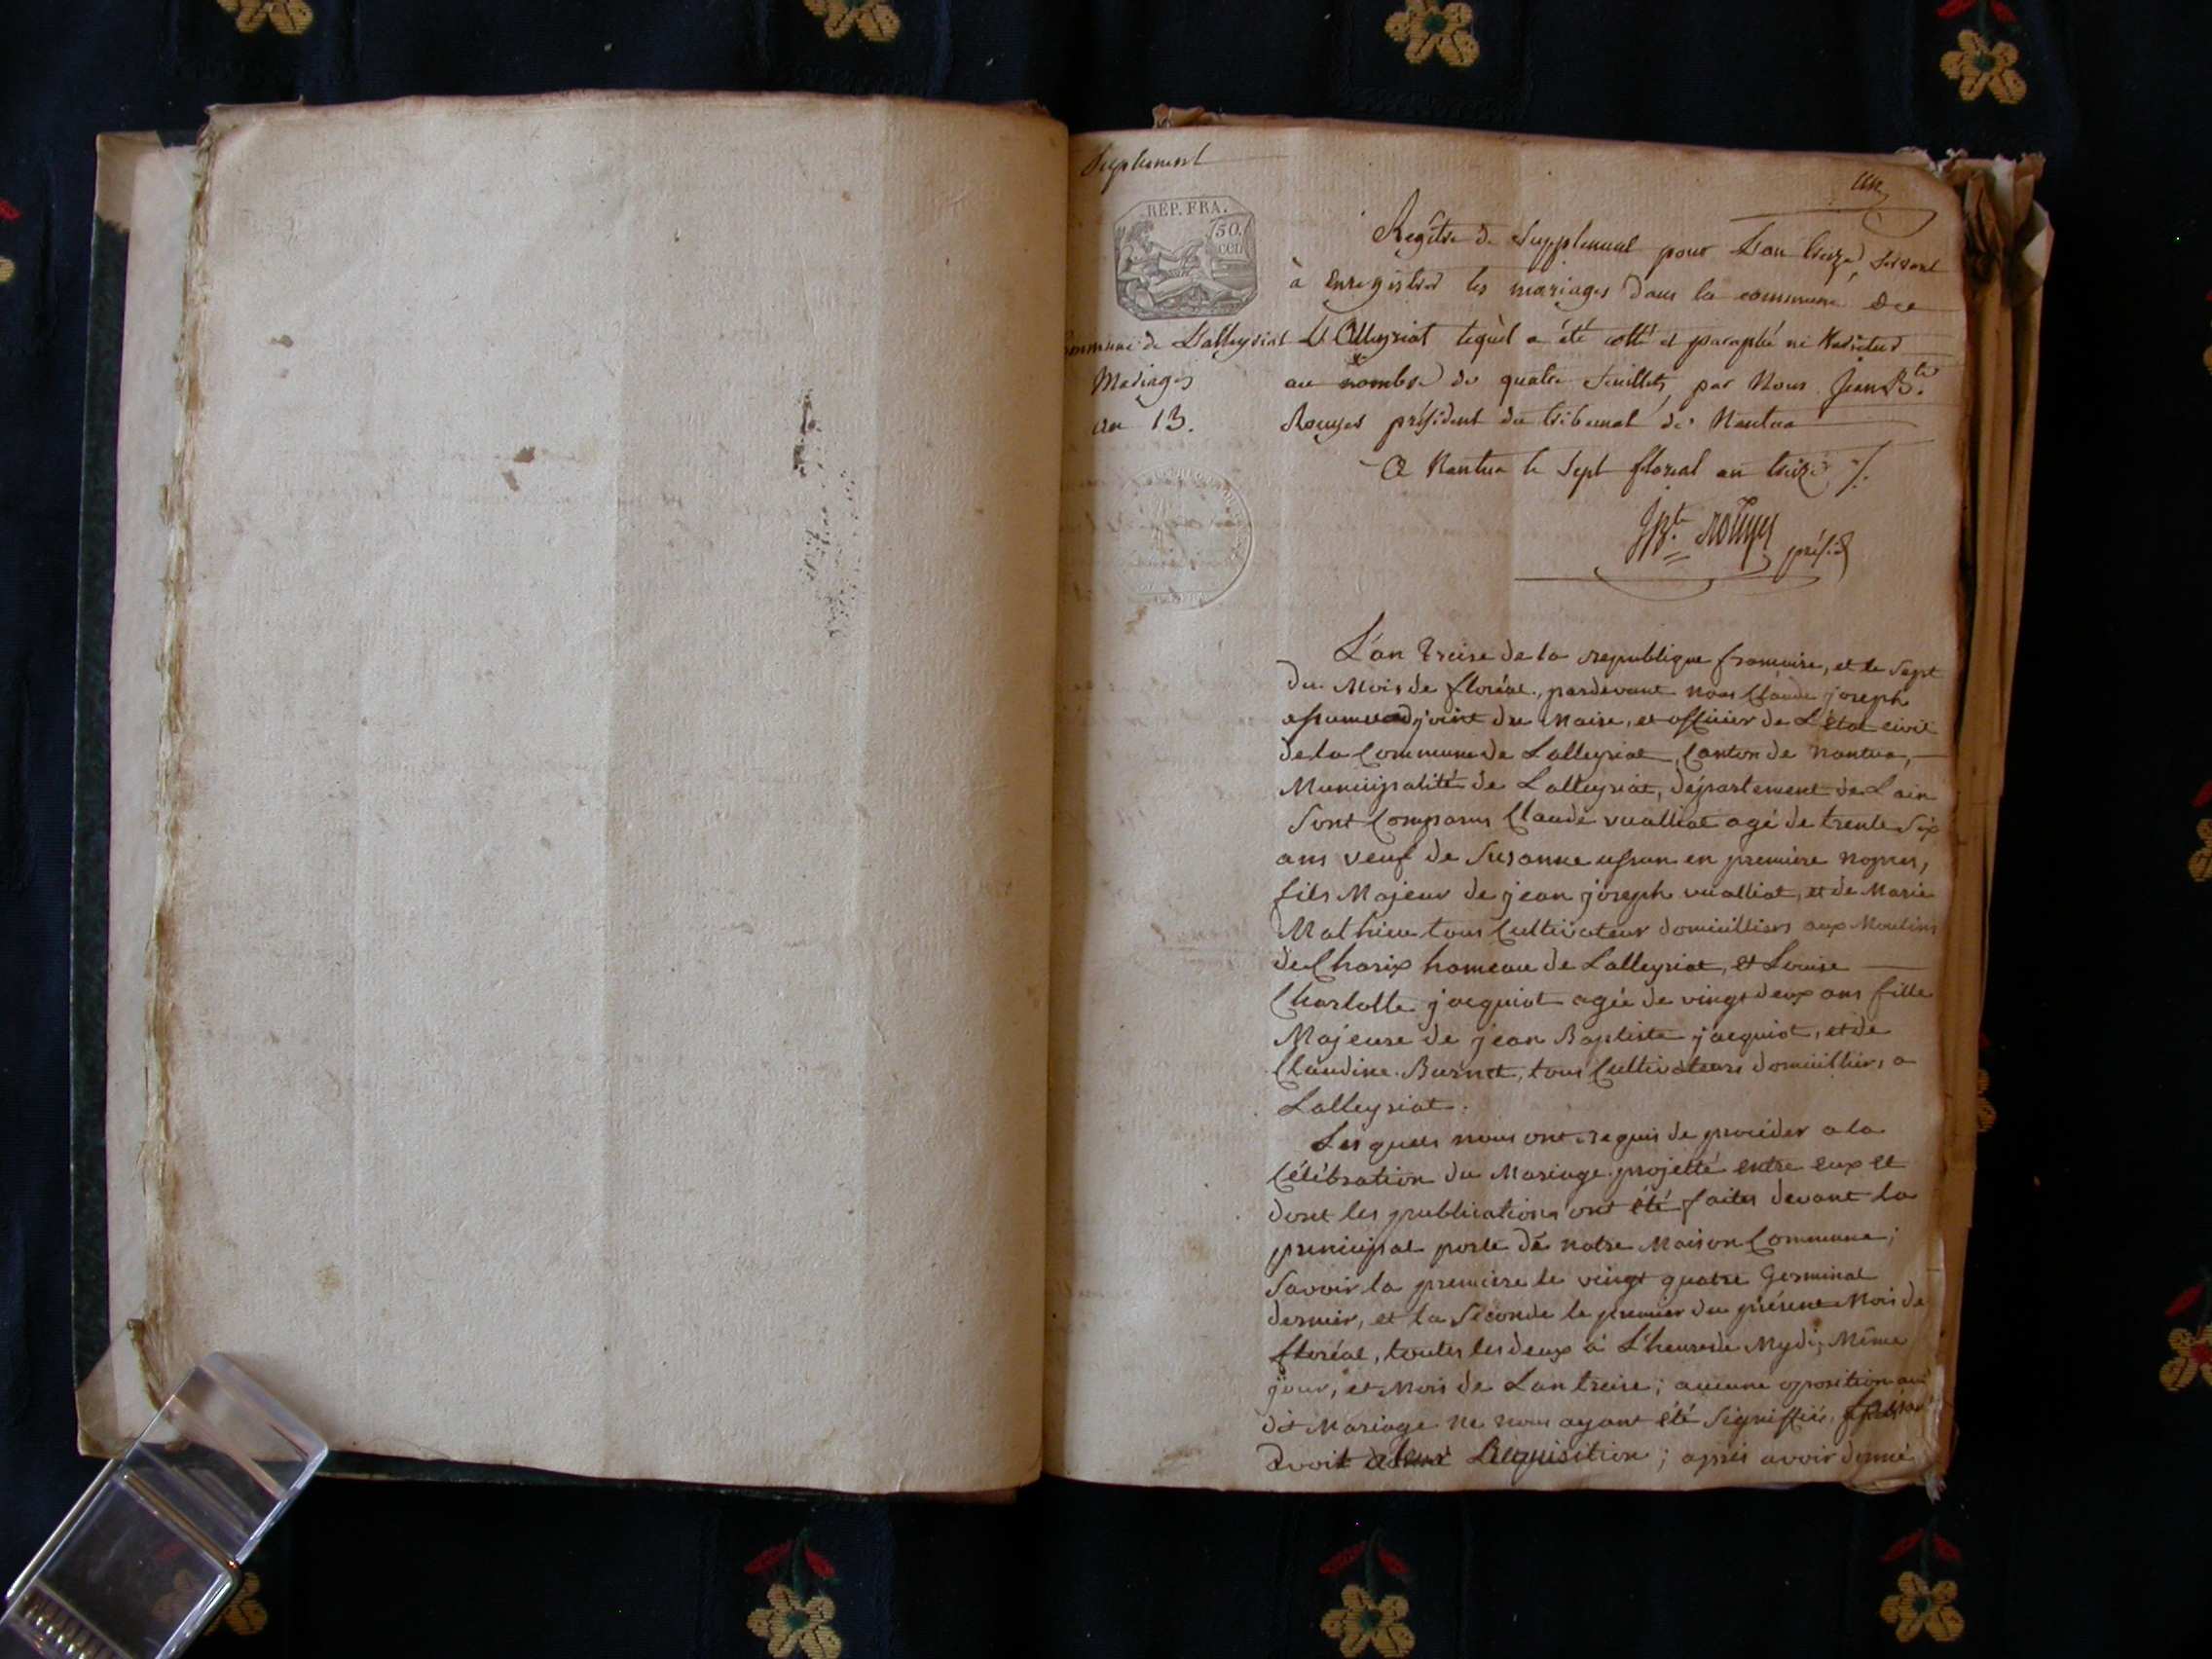 Supplement
REP. FRA.
50.
cen
Commune de Lalleyriat
Mariages
an 13.
un
Regitre de Supplement pour L'an treize, servant
à Enregistrer les mariages dans la commune de
L'Alleyriat lequel a été cotté et paraphé ne Varietur
au nombre de quatre feuillets, par Nous Jean Bte.
Rouyer président du tribunal de Nantua
A Nantua le Sept floreal an treize
JBt. Rouyer présid
L'an treise de la republique francoise, et le Sept
du Mois de floréal, pardevant nous Claude joseph
adjoint du Maire, et officier de L'état civil
de la Commune de Lalleyriat, Canton de Nantua,
Municipalité de Lalleyriat, département de Lain
Sont Comparus Claude vualliat agé de trente Six
ans veuf de Susanne en premiere nopces,
fils Majeur de jean joseph vualliat, et de Marie
Mathieu tous Cultivateur domicilliers aux Moulins
de Charix hameau de Lalleyriat, et Louise
Charlotte jacquiot agée de vingt deux ans fille
Majeure de jean Baptiste jacquiot, et de
Claudine Burnet, tous Cultivateurs domicilliers a
Lalleyriat.
Les quels nous ont requis de procéder a la
Célébration du Mariage projetté entre eux et
dont les publications ont été faites devant la
principal porte de notre Maison Commune;
Savoir la premiere le vingt quatre Germinal
dernier, et la Séconde le premier du présent Mois de
floréal, toutes les deux a L'heure de Mydi, Même
jour, et Mois de Lan treise; aucune oposition au
dit Mariage ne nous ayant été Signiffiée,
droit a leur Requisition; après avoir donné